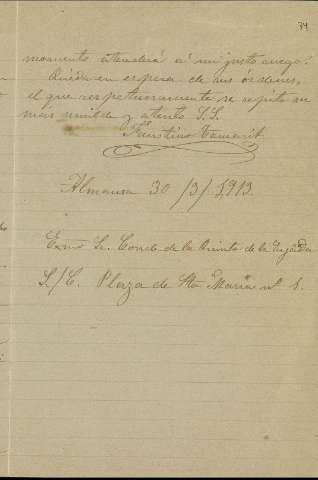 34
momento atenderá á mi justo ruego.
Queda en espera de sus órdenes,
el que respetuosamente se repite su
mas humilde y atento S.S.
Faustino Tamarit
Almansa 30/3/1913.
Exmo Sr. Conde de la Quinta de la Enjarada
S/C. Plaza de Sta María nº 1.